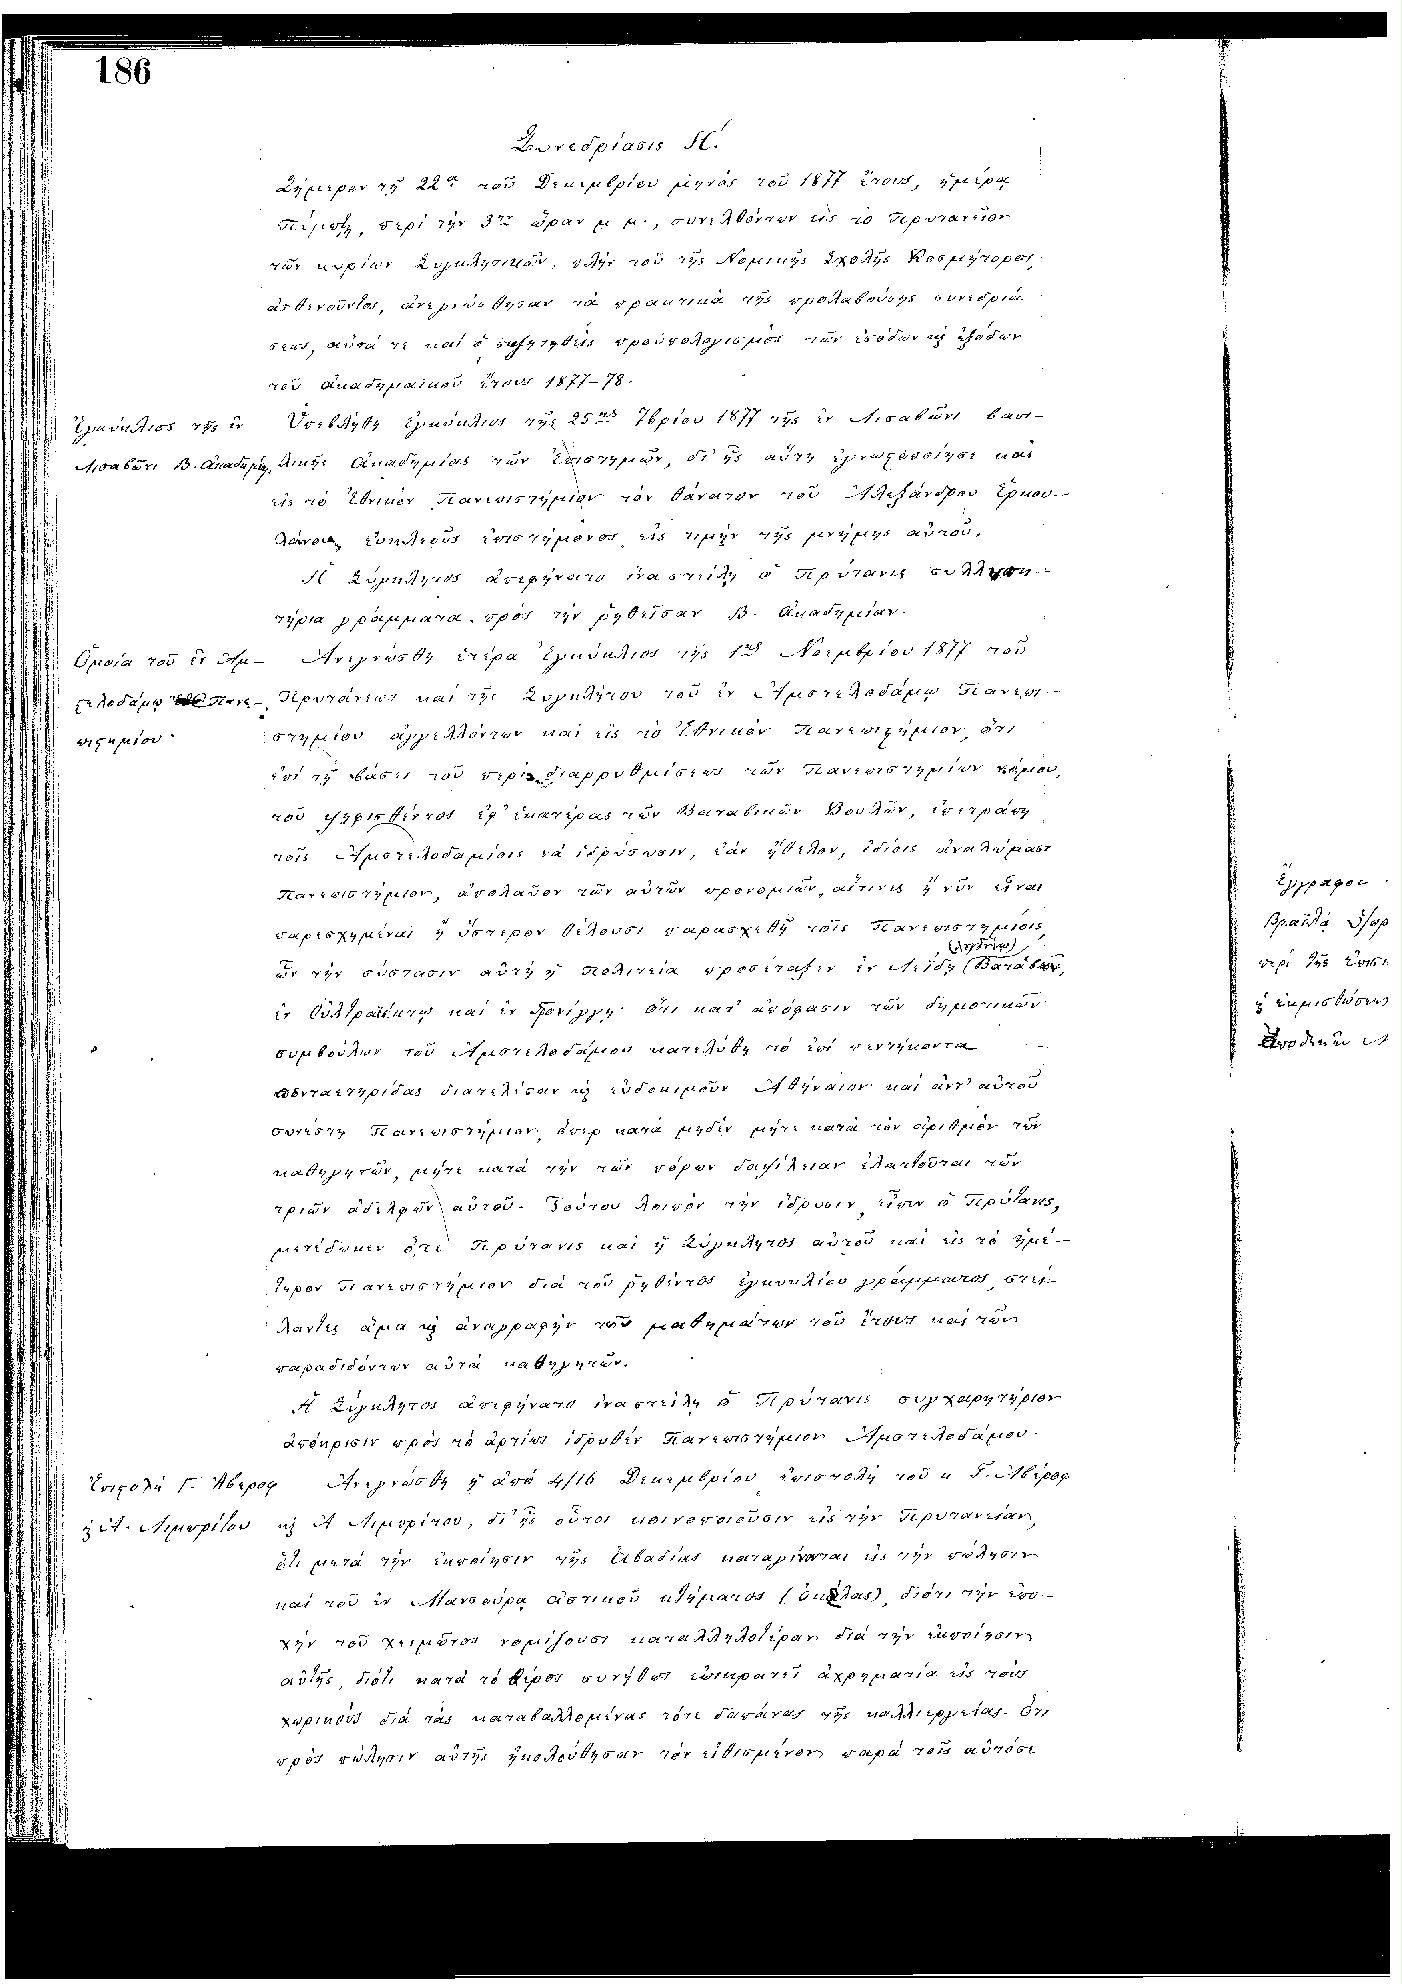 186
Συνεδρίασις Η΄.
Σήμερον τῇ 22ᾳ τοῦ Δεκεμβρίου μηνὸς τοῦ 1877 ἔτους, ἡμέρᾳ
Πέμπτῃ, περὶ τὴν 3ην ὥραν μ. μ., συνελθόντων εἰς τὸ Πρυτανεῖον
τῶν κυρίων Συγκλητικῶν, πλὴν τοῦ τῆς Νομικῆς Σχολῆς Κοσμήτορος,
ἀσθενοῦντος, ἀνεγνώσθησαν τὰ πρακτικὰ τῆς προλαβούσης συνεδριά
σεως, αὐτά τε καὶ ὁ συζητηθεὶς προϋπολογισμὸς τῶν ἐσόδων κ̀ ἐξόδων
τοῦ ἀκαδημαϊκοῦ ἔτους 1877–78.
Ἐγκύκλιος τῆς ἐν
Λισαβῶνι Β. Ἀκαδημίας
Ὑπεβλήθη ἐγκύκλιος τῆς 25ης 7βρίου 1877 τῆς ἐν Λισαβῶνι βασι-
λικῆς Ἀκαδημίας τῶν Ἐπιστημῶν, δι' ἧς αὕτη ἐγνωστοποίησε καὶ
εἰς τὸ Ἐθνικὸν Πανεπιστήμιον τὸν θάνατον τοῦ Ἀλεξάνδρου Ἑρκου-
λάνου, εὐκλεοῦς ἐπιστήμονος, εἰς τιμὴν τῆς μνήμης αὐτοῦ.
Ἡ Σύγκλητος ἀπεφήνατο ἵνα στείλῃ ὁ Πρύτανις συλλυπη-
τήρια γράμματα πρὸς τὴν ῥηθεῖσαν Β. Ἀκαδημίαν.
Ὁμοία τοῦ ἐν Ἀμ-
στελοδάμῳ Πανε-
πιστημίου
Ἀνεγνώσθη ἑτέρα Ἐγκύκλιος τῆς 1ης Νοεμβρίου 1877 τοῦ
Πρυτάνεως καὶ τῆς Συγκλήτου τοῦ ἐν Ἀμστελοδάμῳ Πανεπι-
στημίου ἀγγελλόντων καὶ εἰς τὸ Ἐθνικὸν Πανεπιστήμιον, ὅτι
ἐπὶ τῇ βάσει τοῦ περὶ διαρρυθμίσεως τῶν Πανεπιστημίων νόμου,
τοῦ ψηφισθέντος ἐφ' ἑκατέρας τῶν Βαταβικῶν Βουλῶν, ἐπετράπη
τοῖς Ἀμστελοδαμίοις νὰ ἱδρύσωσιν, ἐὰν ἤθελον, ἰδίοις ἀναλώμασι
Πανεπιστήμιον, ἀπολαῦον τῶν αὐτῶν προνομιῶν, αἵτινες ἢ νῦν εἶναι
παρεσχημέναι ἢ ὕστερον θέλουσι παρασχεθῆ τοῖς Πανεπιστημίοις,
ὧν τὴν σύστασιν αὐτὴ ἡ Πολιτεία προσέταξεν ἐν Λεΐδῃ (Βατάβων,
ἐν Οὐλτραϊέκτῳ καὶ ἐν Γρονίγγῃ· ὅτι κατ' ἀπόφασιν τῶν δημοτικῶν
συμβούλων τοῦ Ἀμστελοδάμου κατελύθη τὸ ἐπὶ πεντήκοντα
πενταετηρίδας διατελέσαν κ̀ εὐδοκιμοῦν Ἀθήναιον καὶ ἀντ' αὐτοῦ
συνέστη Πανεπιστήμιον, ὅπερ κατὰ μηδέν μήτε κατὰ τὸν ἀριθμὸν τῶν
καθηγητῶν, μήτε κατὰ τὴν τῶν πόρων δαψίλειαν ἐλαττοῦται τῶν
τριῶν ἀδελφῶν αὐτοῦ. Τούτου λοιπὸν τὴν ἵδρυσιν, εἶπεν ὁ Πρύτανις,
μετέδωκεν ὅ,τε Πρύτανις καὶ ἡ Σύγκλητος αὐτοῦ καὶ εἰς τὸ ἡμέ-
τερον Πανεπιστήμιον διὰ τοῦ ῥηθέντος ἐγκυκλίου γράμματος, στεί-
λαντες ἅμα κ̀ ἀναγραφὴν τῶν μαθημάτων τοῦ ἔτους καὶ τῶν
παραδιδόντων αὐτὰ καθηγητῶν.
Ἡ Σύγκλητος ἀπεφήνατο ἵνα στείλῃ ὁ Πρύτανις συγχαρητήριον
ἀπόκρισιν πρὸς τὸ ἀρτίως ἱδρυθὲν Πανεπιστήμιον Ἀμστελοδάμου.
Ἐπιστολὴ Γ. Ἀβέρωφ
κ̀ Α. Λιμπρίτου
Ἀνεγνώσθη ἡ ἀπὸ 4/16 Δεκεμβρίου ἐπιστολὴ τοῦ κ. Γ. Ἀβέρωφ
κ̀ Α Λιμπρίτου, δι' ἧς οὗτοι κοινοποιοῦσιν εἰς τὴν Πρυτανείαν,
ὅτι μετὰ τὴν ἐκποίησιν τῆς Ἀβαδίας καταγίνονται εἰς τὴν πώλησιν
καὶ τοῦ ἐν Μανσούρᾳ ἀστικοῦ κτήματος (ὀκέλας), διότι τὴν ἐπο-
χὴν τοῦ χειμῶνος νομίζουσι καταλληλοτέραν διὰ τὴν ἐκποίησιν
αὐτῆς, διότι κατὰ τὸ θέρος συνήθως ἐπικρατεῖ ἀχρηματία εἰς τοὺς
χωρικοὺς διὰ τὰς καταβαλλομένας τότε δαπάνας τῆς καλλιεργείας. Ὅτι
πρὸς πώλησιν αὐτῆς ἠκολούθησαν τὸν εἰθισμένον παρὰ τοῖς αὐτόσε
Ἔγγραφον
Βραΐλα
περὶ τῆς
κ̀ ἐκμισθώσεως